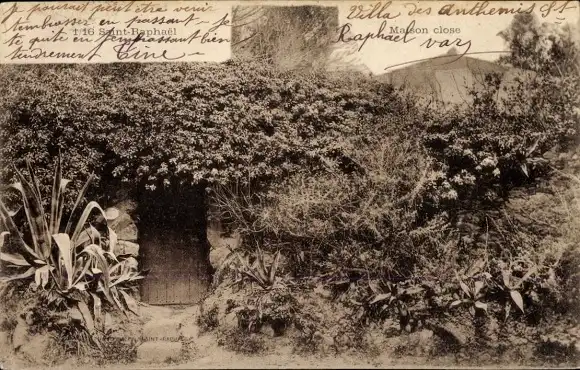 Je pourrait peut être venir
tembrasser en passant - je
te quitte en t'embrassant bien
tendrement Tine
1/16 Saint-Raphaël
Villa des Anthemis St
Raphael var
Maison close